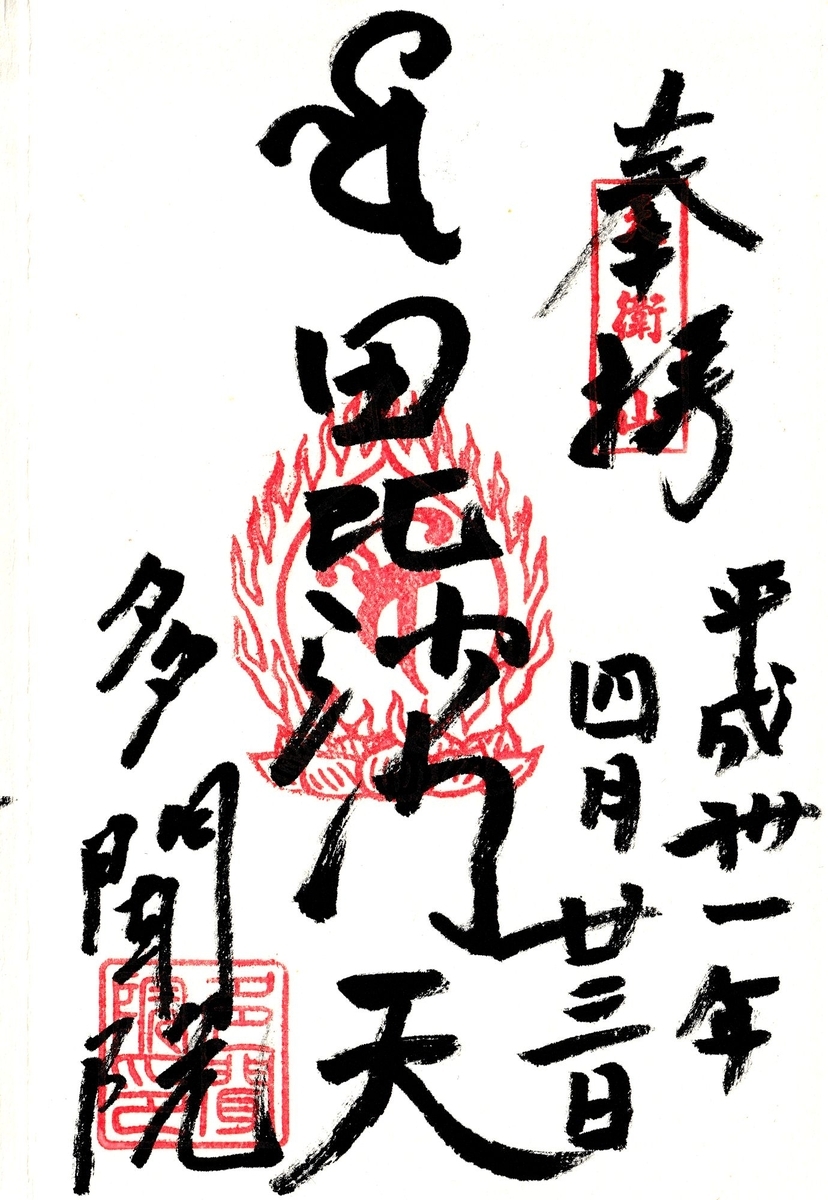 奉拝
平成卅一年
四月廿三日
毘沙門天
多聞院
衛山
多聞院印